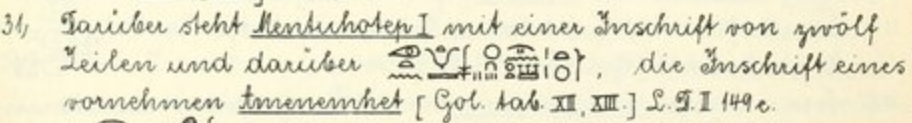 31, Darüber steht Mentuhotep I mit einer Inschrift von zwölf
Zeilen und darüber , die Inschrift eines
vornehmen Amenemhet [ Gol. tab. XII, XIII. ] L. D. II 149 c.